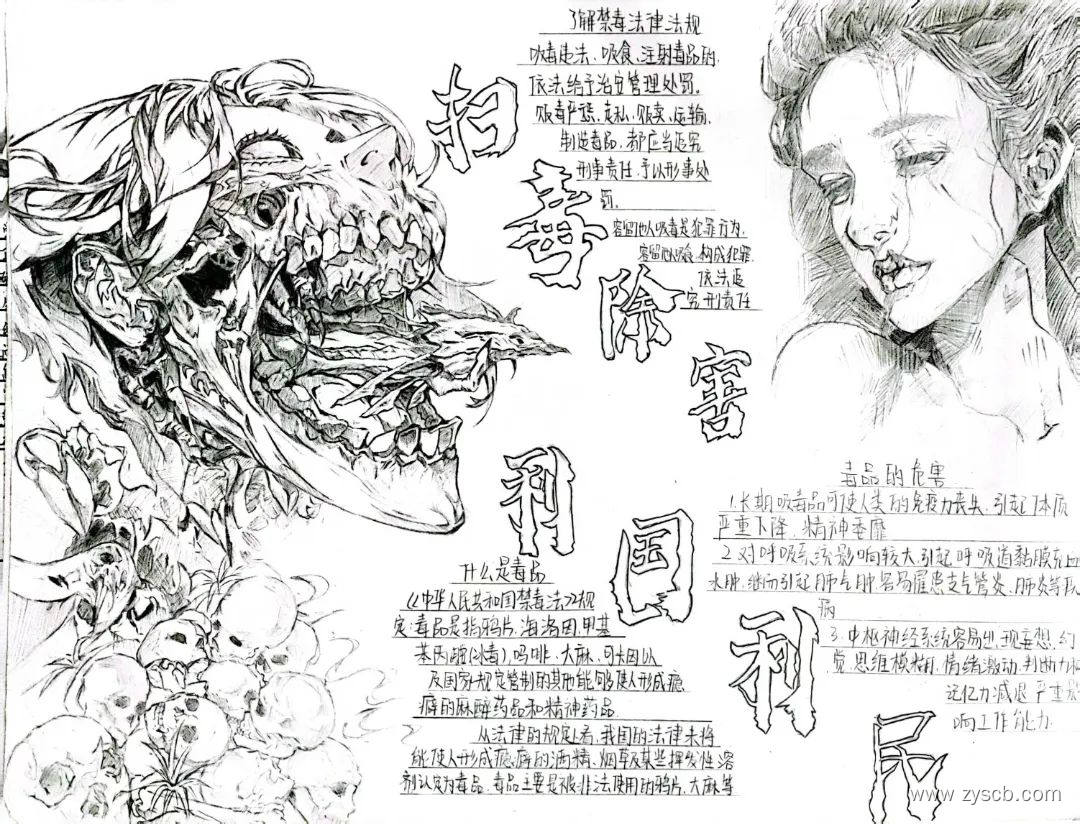 了解禁毒法律法规
吸毒违法、吸食、注射毒品的,
依法给予治安管理处罚。
贩毒严惩,走私、贩卖、运输、
制造毒品,都应当追究
刑事责任,予以刑事处
罚。
容留他人吸毒是犯罪行为,
容留他人吸食,构成犯罪,
依法追
究刑责任
扫
毒
除
害
利
国
利
民
毒品的危害
1.长期吸毒品可使人类的免疫力丧失,引起体质
严重下降,精神萎靡
2.对呼吸系统影响较大,引起呼吸道黏膜充血
水肿,继而引起肺气肿容易罹患支气管炎、肺炎等疾
病
3.中枢神经系统容易出现妄想、幻
觉,思维模糊,情绪激动,判断力和
记忆力减退严重影
响工作能力.
什么是毒品
《中华人民共和国禁毒法》规
定:毒品是指鸦片,海洛因,甲基
苯丙胺(冰毒),吗啡、大麻、可卡因以
及国家规定管制的其他能够使人形成瘾
癖的麻醉药品和精神药品.
从法律的规定上看,我国的法律未将
能使人形成瘾癖的酒精、烟草及某些挥发性溶
剂认定为毒品,毒品主要是被非法使用的鸦片、大麻等
www.zyscb.com